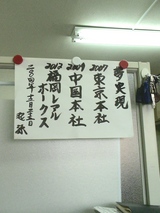 夢実現
2007 東京本社
2009 中国本社
2012 福岡レアル
ホークス
二〇〇四年十二月二十五日